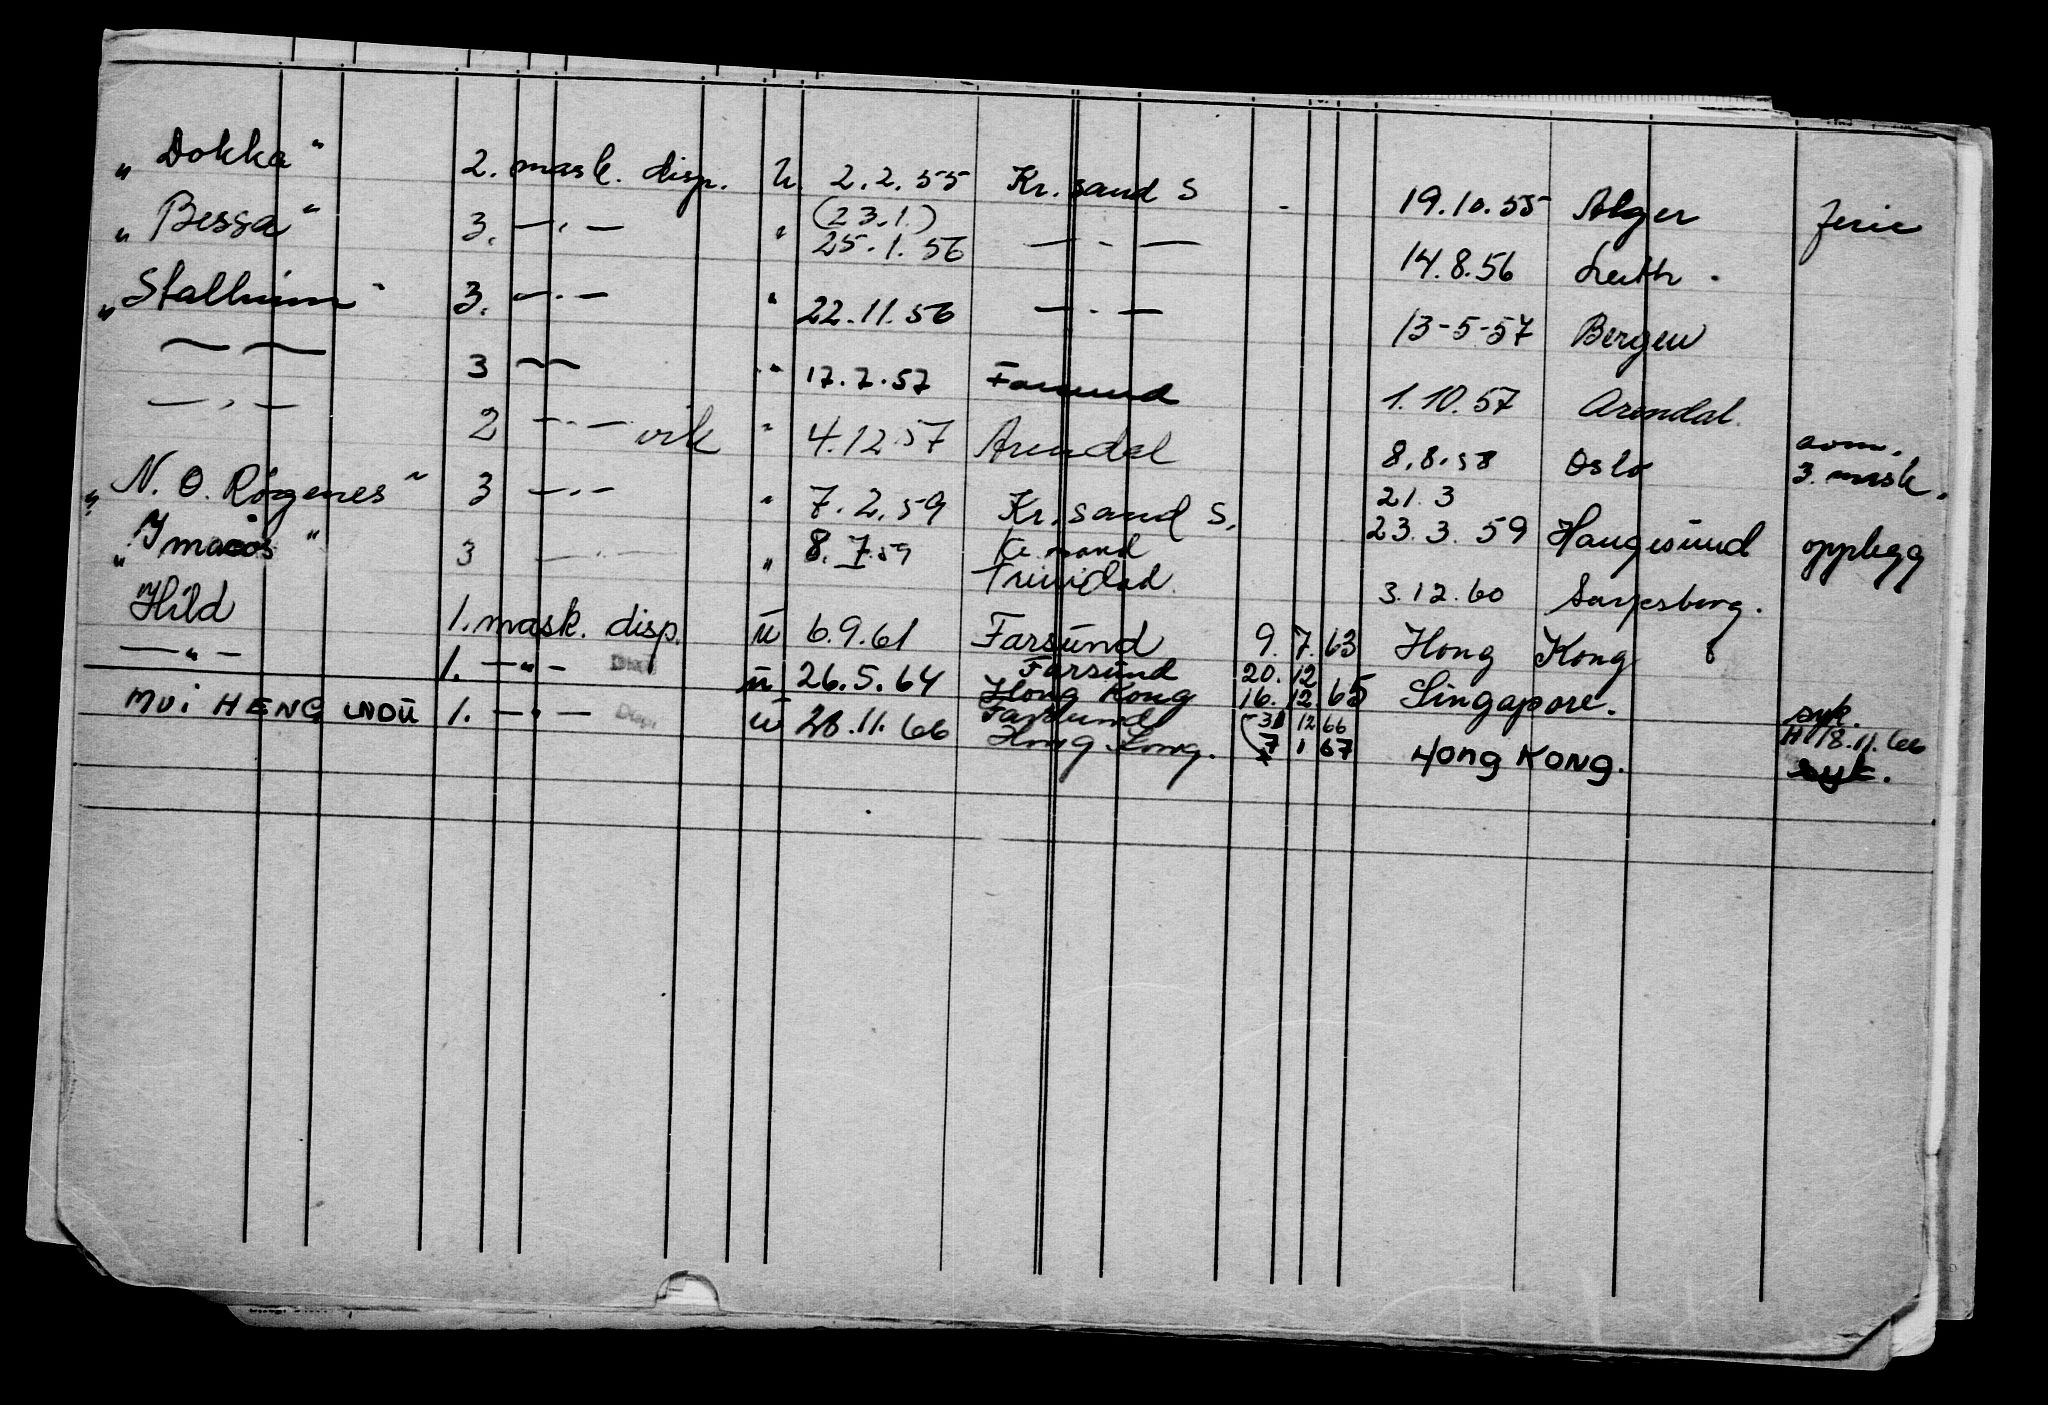 „ Dokka " 2. mask. disp. u. 2.2.55 Kr.sand S - 19.10.55 Alger ferie
„ Bessa " 3. — " — " (23.1.) 25.1.56 — " — 14.8.56 Leith.
„ Stalheim " 3. — " — " 22.11.56 — " — 13-5-57 Bergen
— — 3 — — " 17.7.57 Farsund 1.10.57 Arendal.
— " — 2 — " — vik " 4.12.57 Arendal 8.8.58 Oslo avm. 3. mask.
„ N. O. Røgenes " 3 — " — " 7.2.59 Kr.sand S. 21.3 23.3.59 Haugesund opplegg
„ Imacos " 3 — " — " 8.7.59 Kr.sand Trinidad. 3.12.60 Sarpsborg.
Hild 1. mask. disp. u 6.9.61 Farsund 9.7.63 Hong Kong
— " — 1. — " — Disp. u 26.5.64 Farsund Hong Kong 20.12 16.12.65 Singapore. syk.
MUI HENG LNDU 1. — " — Disp. u 28.11.66 Farsund Hong Kong. (31 12 66 7 1 67 HONG KONG. H 18.11.66 syk.